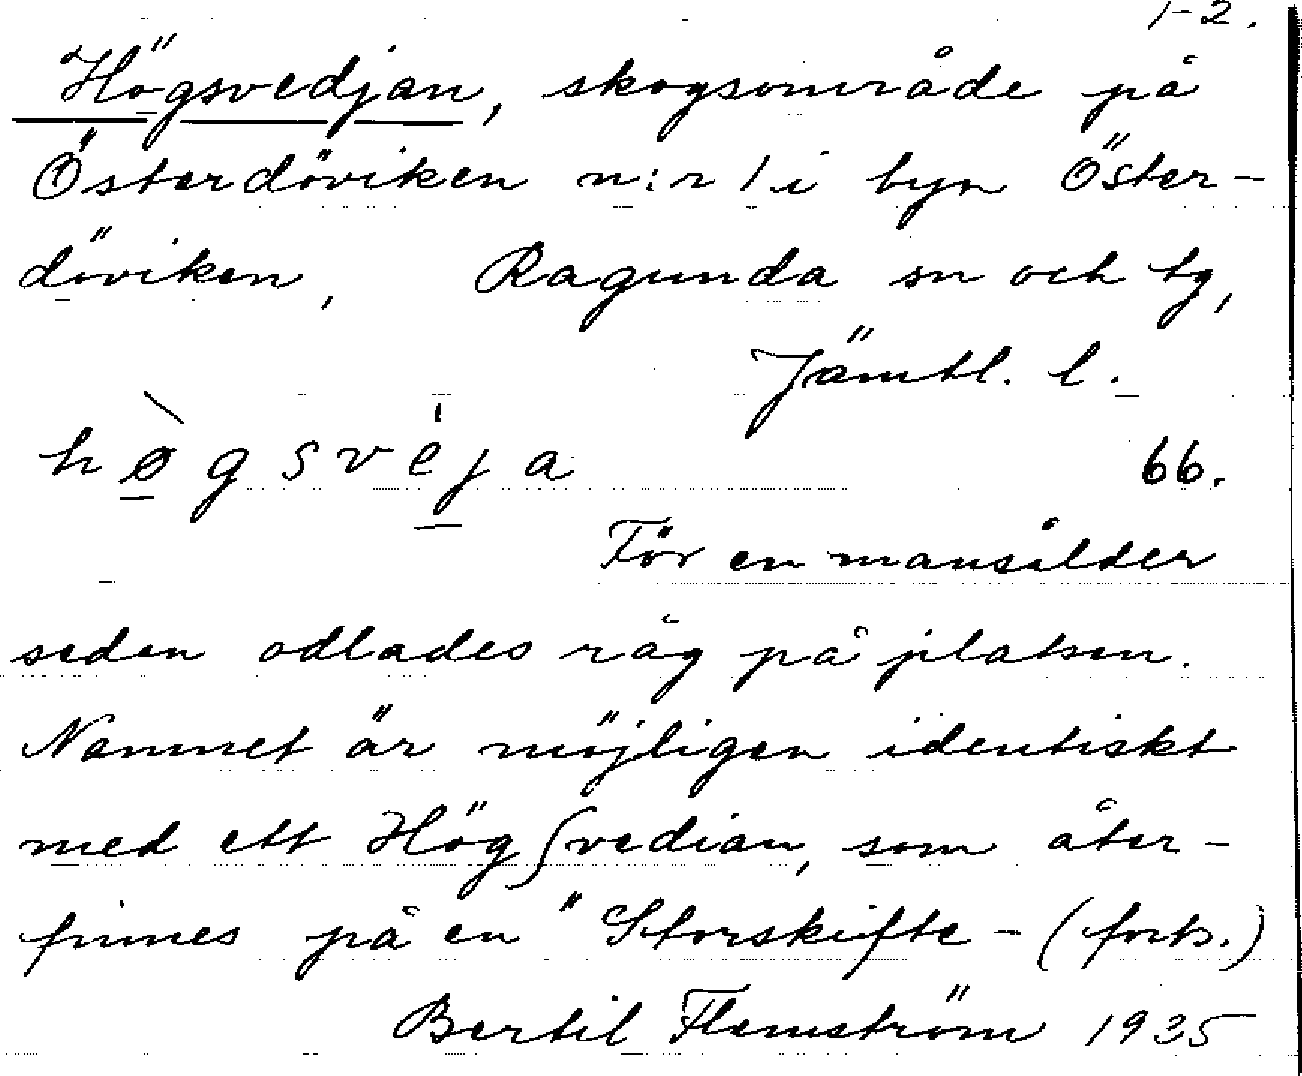 1-2.
Högsvedjan, skogsområde på
Österdöviken n:r 1 i byn Öster-
döviken, Ragunda sn och tg,
Jämtl. l.
hø̀gsve̍ja 66.
För en mansålder
sedan odlades råg på platsen.
Namnet är möjligen identiskt
med ett Högſvedian, som åter-
finnes på en "Storskifte- (forts.)
Bertil Flemström 1935